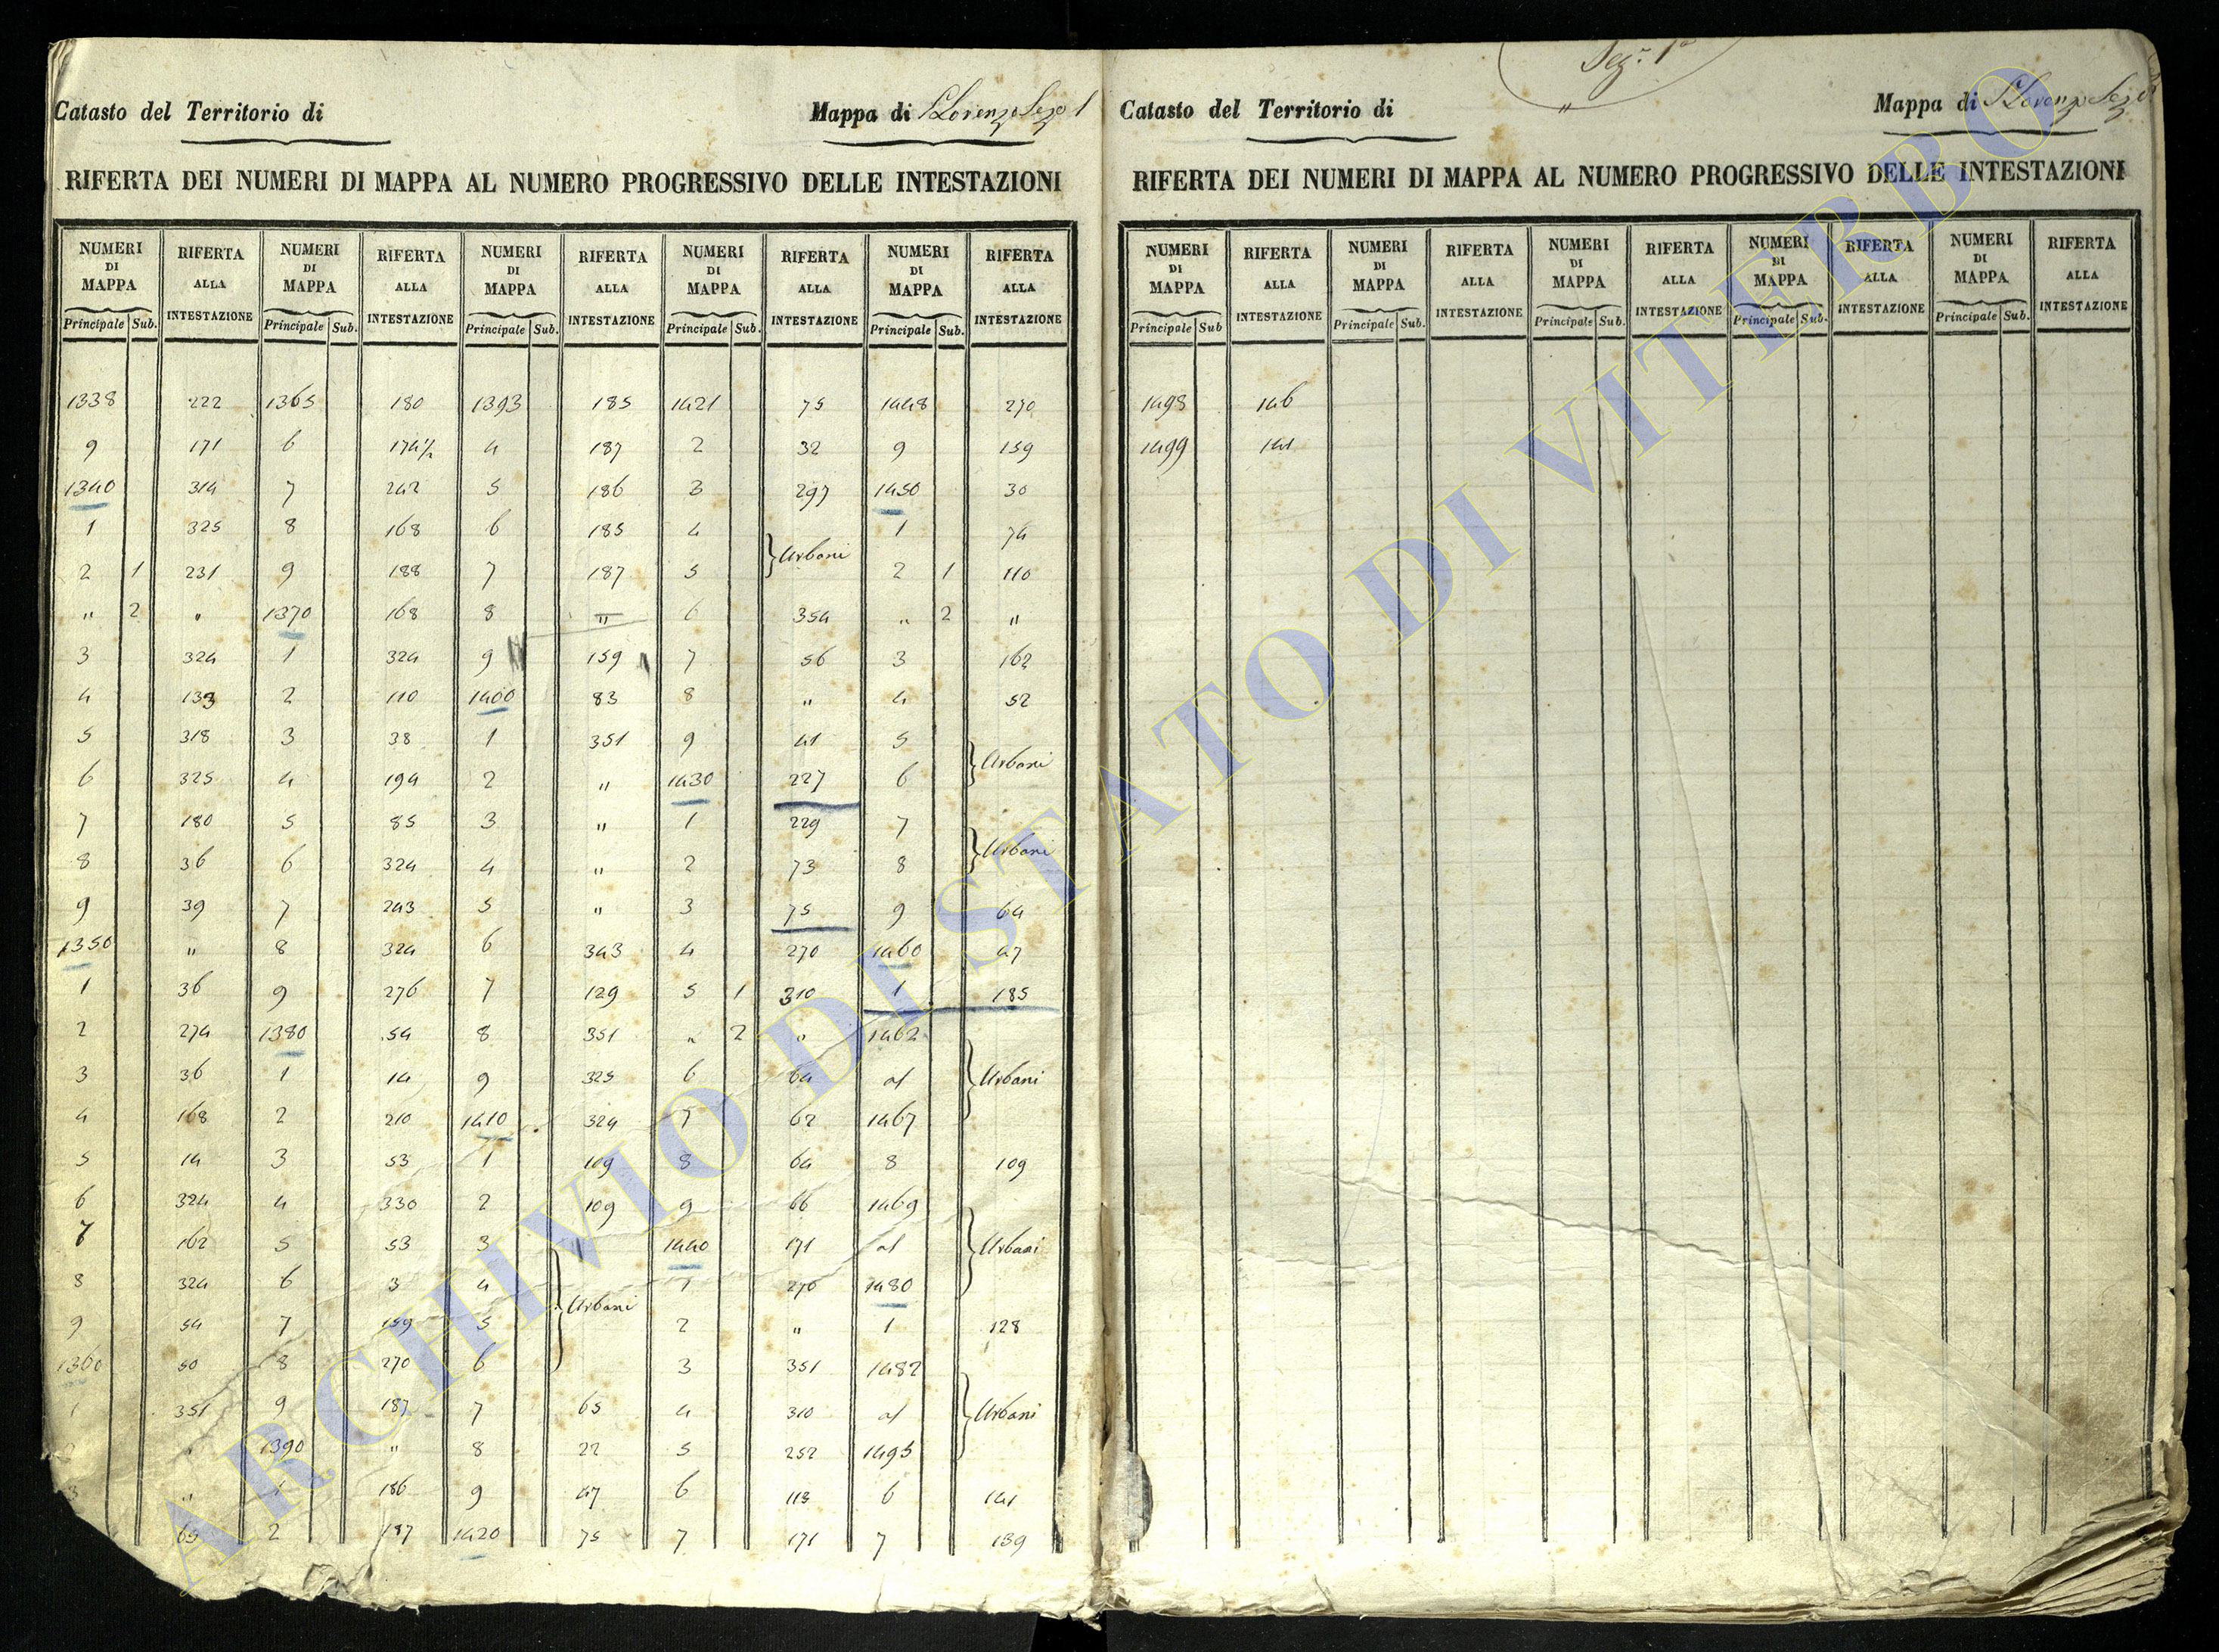 Sez.e 1a
Catasto del Territorio di Mappa di S Lorenzo Sezo 1
RIFERTA DEI NUMERI DI MAPPA AL NUMERO PROGRESSIVO DELLE INTESTAZIONI
NUMERI DI MAPPA RIFERTA ALLA INTESTAZIONE NUMERI DI MAPPA RIFERTA ALLA INTESTAZIONE NUMERI DI MAPPA RIFERTA ALLA INTESTAZIONE NUMERI DI MAPPA RIFERTA ALLA INTESTAZIONE NUMERI DI MAPPA RIFERTA ALLA INTESTAZIONE
Principale Sub. Principale Sub. Principale Sub. Principale Sub. Principale Sub.
1338 222 1365 180 1393 185 1421 75 1448 270
9 171 6 174½ 4 187 2 32 9 159
1340 314 7 242 5 186 3 297 1450 30
1 325 8 168 6 185 4 1 74
Urbani
2 1 231 9 188 7 187 5 2 1 110
" 2 " 1370 168 8 " 6 354 " 2 "
3 324 1 324 9 159 7 56 3 162
4 133 2 110 1400 83 8 " 4 52
5 318 3 38 1 351 9 41 5
Urbani
6 325 4 194 2 " 1430 227 6
7 180 5 85 3 " 1 229 7
Urbani
8 36 6 324 4 " 2 73 8
9 39 7 243 5 " 3 75 9 64
1350 " 8 324 6 343 4 270 1460 47
1 36 9 276 7 129 5 1 310 1 185
2 274 1380 54 8 351 " 2 " 1462
3 36 1 14 9 325 6 64 al Urbani
4 168 2 210 1410 324 7 62 1467
5 14 3 53 1 109 8 64 8 109
6 324 4 330 2 109 9 66 1469
7 162 5 53 3 1440 171 al Urbani
8 324 6 3 4 1 270 1480
Urbani
9 54 7 159 5 2 " 1 128
1360 50 8 270 6 3 351 1482
1 351 9 187 7 65 4 310 al Urbani
" 1390 " 8 22 5 252 1495
3 " 1 186 9 47 6 113 6 141
65 2 187 1420 75 7 171 7 139
Catasto del Territorio di " Mappa di S Lorenzo Sezo
RIFERTA DEI NUMERI DI MAPPA AL NUMERO PROGRESSIVO DELLE INTESTAZIONI
NUMERI DI MAPPA RIFERTA ALLA INTESTAZIONE NUMERI DI MAPPA RIFERTA ALLA INTESTAZIONE NUMERI DI MAPPA RIFERTA ALLA INTESTAZIONE NUMERI DI MAPPA RIFERTA ALLA INTESTAZIONE NUMERI DI MAPPA RIFERTA ALLA INTESTAZIONE
Principale Sub Principale Sub. Principale Sub. Principale Sub. Principale Sub.
1498 146
1499 141
ARCHIVIO DI STATO DI VITERBO